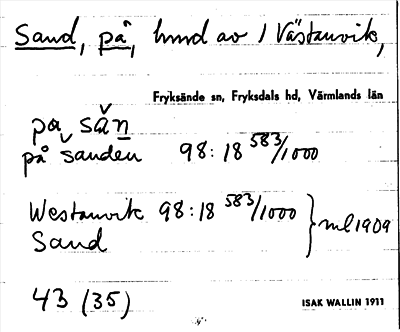 Sand, på, hmd av 1 Västanvik,
Fryksände sn, Fryksdals hd, Värmlands län
pa sǎn
på sanden 98:18 583/1000
Westanvik 98:18 583/1000 } ml 1909
Sand
43 (35)
ISAK WALLIN 1911